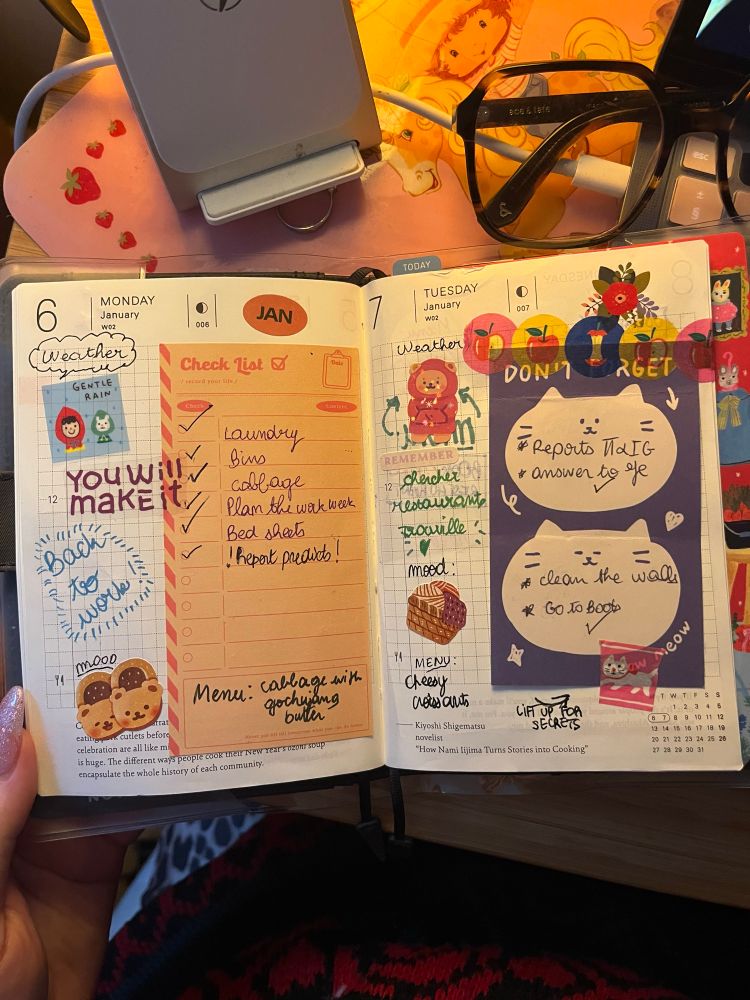 esc
TODAY
6
MONDAY
January
W02
006
JAN
Weather
GENTLE
RAIN
YOU WiLL
maKE it
12
Back
to
work
mood
Check List
/ record your life /
Date
Check
Content
Laundry
Bins
cabbage
Plan the work week
Bed sheets
!Report products!
Menu: cabbage with
gochujang
butter
celebration are all like
is huge. The different ways people cook their New Year's ozoni soup
encapsulate the whole history of each community.
7
TUESDAY
January
W02
007
Weather
REMEMBER
12
chercher
restaurants
trouville
mood:
MENU:
Cheesy
croissants
DON'T FORGET
* Reports
* answer to
* clean the walls
* Go to Boots
meow
LIFT UP FOR
SECRETS
Kiyoshi Shigematsu
novelist
"How Nami Iijima Turns Stories into Cooking"
T W T F S S
1 2 3 4 5
6 7 8 9 10 11 12
13 14 15 16 17 18 19
20 21 22 23 24 25 26
27 28 29 30 31